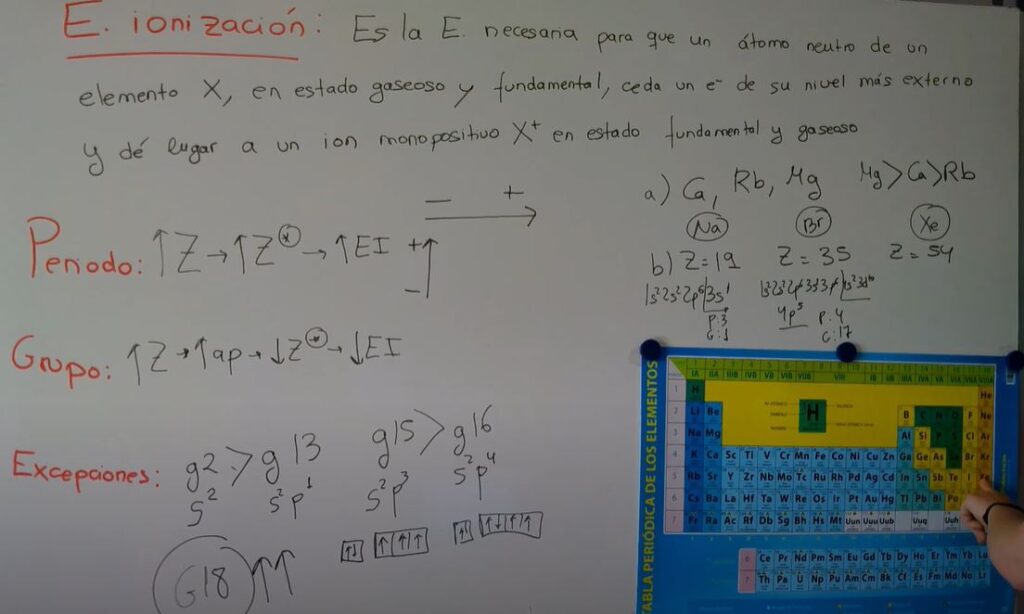 E. ionización: Es la E. necesaria para que un átomo neutro de un
elemento X, en estado gaseoso y fundamental, ceda un e⁻ de su nivel más externo
y dé lugar a un ion monopositivo X⁺ en estado fundamental y gaseoso
− +
Periodo: ↑Z → ↑Z* → ↑EI
+
−
Grupo: ↑Z → ↑ap → ↓Z* → ↓EI
Excepciones: g2 > g13 g15 > g16
s² s²p¹ s²p³ s²p⁴
↑↓ ↑ ↑ ↑ ↑↓ ↑↓ ↑ ↑
G18 ↑↑
a) Ca, Rb, Mg Mg > Ca > Rb
Na Br Xe
b) Z=19 Z=35 Z=54
1s²2s²2p⁶3s¹
p:3
G:1
4p⁵ p:4
G:17
TABLA PERIÓDICA DE LOS ELEMENTOS
IA IIA IIIB IVB VB VIB VIIB VIII IB IIB IIIA IVA VA VIA VIIA
1 H He
2 Li Be B C N O F Ne
3 Na Mg Al Si P S Cl Ar
4 K Ca Sc Ti V Cr Mn Fe Co Ni Cu Zn Ga Ge As Se Br Kr
5 Rb Sr Y Zr Nb Mo Tc Ru Rh Pd Ag Cd In Sn Sb Te I Xe
6 Cs Ba La Hf Ta W Re Os Ir Pt Au Hg Tl Pb Bi Po
7 Fr Ra Ac Rf Db Sg Bh Hs Mt Uun Uuu Uub Uuq Uuh
H
6 Ce Pr Nd Pm Sm Eu Gd Tb Dy Ho Er Tm Yb Lu
7 Th Pa U Np Pu Am Cm Bk Cf Es Fm Md No Lr